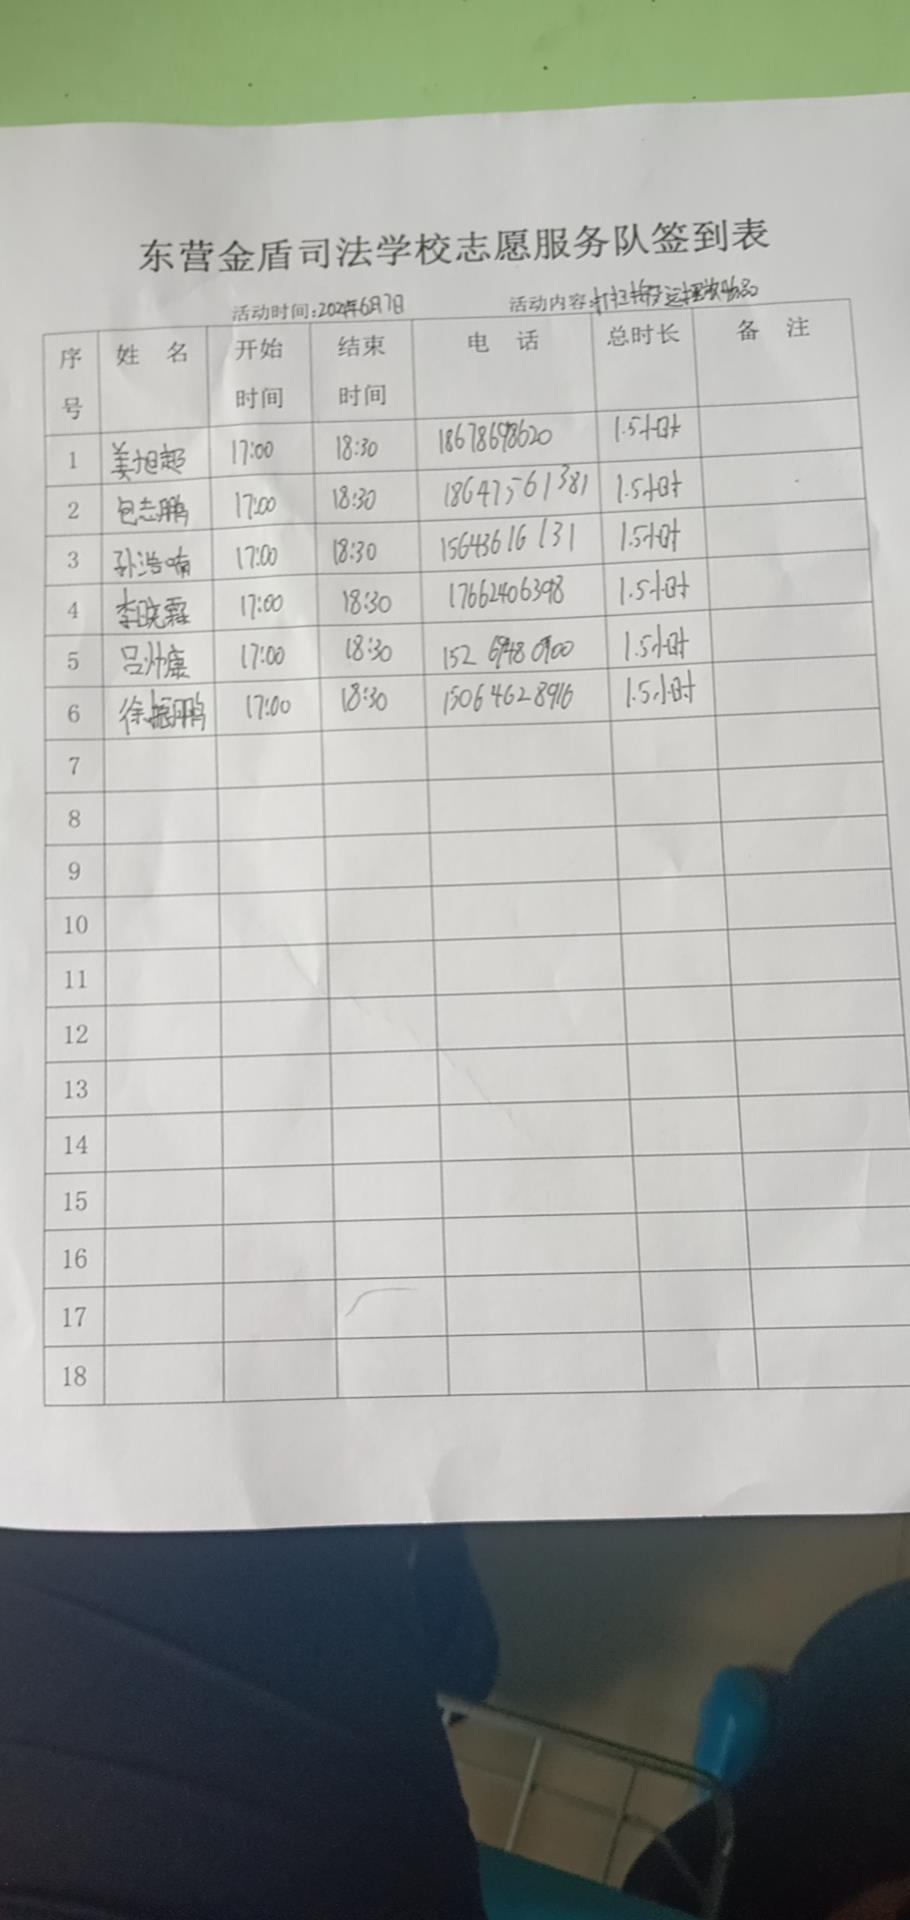 东营金盾司法学校志愿服务队签到表
活动时间:2024年6月7日 活动内容:打扫
序号 姓 名 开始时间 结束时间 电 话 总时长 备 注
1 姜旭超 17:00 18:30 18678698620 1.5小时
2 包志鹏 17:00 18:30 18647561381 1.5小时
3 孙浩喃 17:00 18:30 15643616131 1.5小时
4 李晓霖 17:00 18:30 17662406398 1.5小时
5 吕帅康 17:00 18:30 1.5小时
6 徐振鹏 17:00 18:30 15064628916 1.5小时
7
8
9
10
11
12
13
14
15
16
17
18